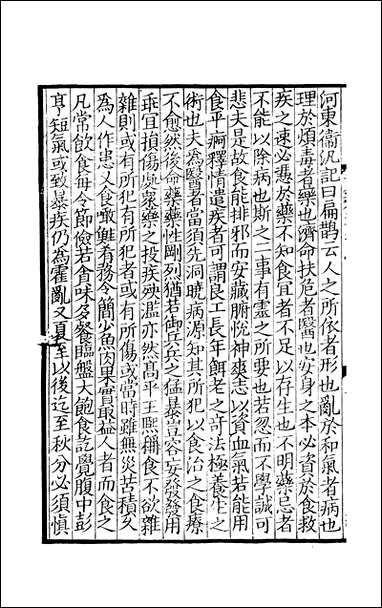 河東衞汎記曰扁鵲云人之所依者形也亂於和氣者病也
理於煩毒者藥也濟命扶危者醫也安身之本必資於食救
疾之速必憑於藥不知食宜者不足以存生也不明藥忌者
不能以除病也斯之二事有靈之所要也若忽而不學誠可
悲夫是故食能排邪而安藏腑恱神爽志以資血氣若能用
食平痾釋情遣疾者可謂良工長年餌老之奇法極養生之
術也夫為醫者當須先洞曉病源知其所犯以食治之食療
不愈然後命藥藥性剛烈猶若御兵兵之猛暴豈容妄發發用
乖宜損傷處衆藥之投疾殃濫亦然高平王熙稱食不欲雜
雜則或有所犯有所犯者或有所傷或當時雖無災苦積久
為人作患又食噉鮭肴務令簡少魚肉果實取益人者而食之
凡常飲食每令節儉若貪味多餐臨盤大飽食訖覺腹中彭
亨短氣或致暴疾仍為霍亂又夏至以後迄至秋分必須慎